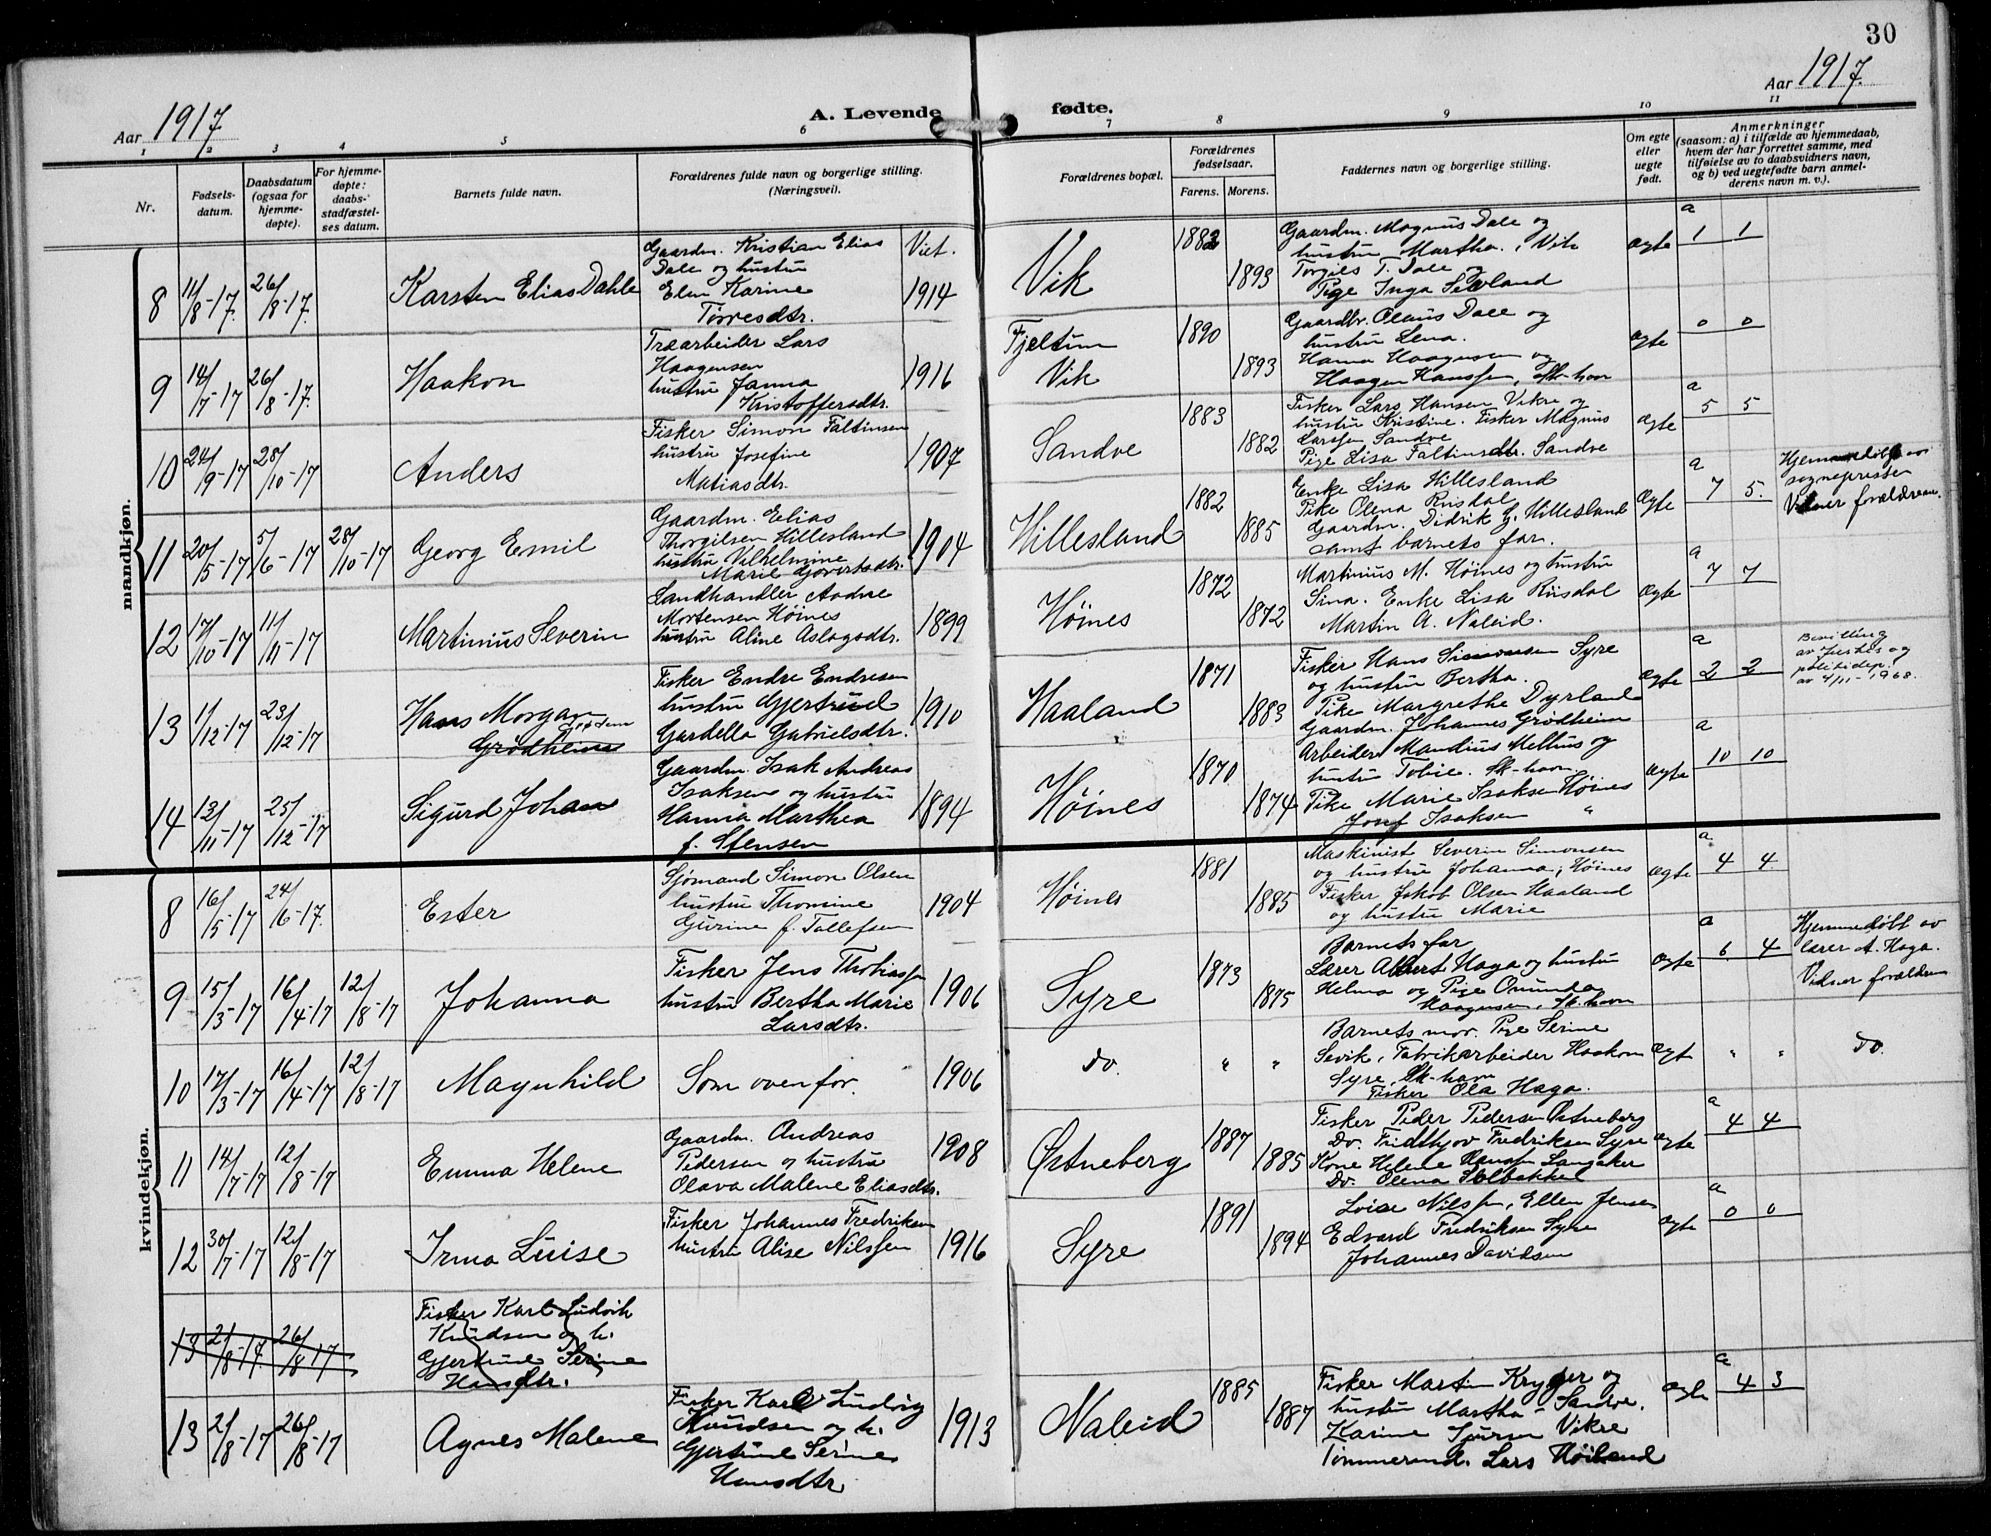 30
Aar 1917
A. Levende
fødte.
Aar 1917.
1 2 3 4 5 6 7 8 9 10 11
Nr.
Fødsels-
datum.
Daabsdatum
(ogsaa for
hjemme-
døpte).
For hjemme-
døpte:
daabs-
stadfæstel-
ses datum.
Barnets fulde navn.
Forældrenes fulde navn og borgerlige stilling.
(Næringsvei).
Forældrenes bopæl.
Forældrenes
fødselsaar.
Farens. Morens.
Faddernes navn og borgerlige stilling.
Om egte
eller
uegte
født.
Anmerkninger
(saasom: a) i tilfælde av hjemmedaab,
hvem der har forrettet samme, med
tilføielse av to daabsvidners navn,
og b) ved uegtefødte barn anmel-
derens navn m. v.).
mandkjøn.
8 11/8-17. 26/8-17. Karsten Elias Dahle
Gaardm. Kristian Elias
Dale og hustru
Elen Karine
Torresdtr.
Viet.
1914
Vik
1882
1893
Gaardm. Magnus Dale og
hustru Martha, Vik
Torgils T. Dale og
Pige Inga Sævland
ægte
a
1 1
9 14/7-17 26/8-17. Haakon
Træarbeider Lars
Haagensen
hustru Janna
Kristoffersdtr.
1916
Fjeltun
Vik
1890
1893
Gaardbr. Olaus Dale og
hustru Lena.
Hanna Haagensen og
Haagen Hanssen, Sk-havn
ægte
0 0
10 24/9-17 28/10-17 Anders
Fisker Simon Faltinsen
hustru Josefine
Matiasdtr.
1907
Sandve
1883
1882
Fisker Lars Hansen Vikre og
hustru Kristine. Fisker Magnus
Larssen Sandve
Pige Lisa Faltinsdtr. Sandve
ægte
a
5 5
11 20/5-17 5/6-17 28/10-17 Georg Emil
Gaardm. Elias
Thorgilsen Hillesland
hustru Vilhelmine
Marie Govertsdtr.
1904
Hillesland
1882
1885
Enke Lisa Hillesland
Pike Olena Risdal
Gaardm. Didrik G. Hillesland
samt barnets far.
Ægte
a
7 5.
Hjemmedøbt av
sognepresten
Vidner forældrene.
12 17/10-17 11/11-17 Martinius Severin
Landhandler Andre
Mortensen Høines
hustru Aline Aslagsdtr.
1899
Høines
1872
1872
Martinius M. Høines og hustru
Sina. Enke Lisa Riisdal
Martin A. Naleid.
Ægte
a
7 7
13 1/12-17 23/12-17 Hans Morgan
Grødem
Grødheim
Fisker Endre Endresen
hustru Gjertrud
Gardella Gabrielsdtr.
1910
Haaland
1871
1883
Fisker Hans Simonsen Syre
og hustru Bertha.
Pike Margrethe Dyrland
Gaardm. Johannes Grødheim
ægte
a
2 2
Bevilling
av Justis og
politidep.
av 4/11-1968.
14 13/11-17 25/12-17 Sigurd Johan
Gaardm. Isak Andreas
Isaksen og hustru
Hanna Marthea
f. Stensen
1894
Høines
1870
1874
Arbeider Mandius Melhus og
hustru Tobie. Sk-havn
Pike Marie Isaksen Høines
Josef Isaksen "
ægte
a
10 10
kvindekjøn.
8 16/5-17 24/6-17. Ester
Sjømand Simon Olsen
hustru Thomine
Gurine f. Tollefsen
1904
Høines
1881
1885
Maskinist Severin Simonsen
og hustru Johanna, Høines
Fisker Jakob Olsen Haaland
og hustru Marie
ægte
a
4 4
9 15/3-17 16/4-17 12/8-17 Johanna
Fisker Jens Thobiassen
hustru Bertha Marie
Larsdtr.
1906
Syre
1873
1875
Barnets far
Lærer Albert Haga og hustru
Helma og Pige Omunda
Haagensen, Sk.havn
ægte
a
6 4
Hjemmedøbt av
lærer A. Haga.
Vidner forældrene
10 17/3-17 16/4-17 12/8-17 Magnhild
Som ovenfor.
1906
do.
" "
Barnets mor. Pige Serine
Sevik, Fabrikarbeider Haakon
Syre, Sk-havn
Fisker Ola Haga.
Ægte
" "
do.
11 14/7-17 12/8-17 Emma Helene
Gaardm. Andreas
Pedersen og hustru
Olava Malene Eliasdtr.
1908
Østneberg
1887
1885
Fisker Peder Pedersen Østneberg
Do. Fridthjov Fredriksen Syre
Kone Helene Hanssen Langaker
Do. Olena Solbakken
ægte
a
4 4
12 30/7-17 12/8-17 Irma Luise
Fisker Johannes Fredriksen
hustru Alise Nilssen
1916
Syre
1891
1894
Loise Nilssen, Ellen Jensen
Edvard Fredriksen Syre
Johannes Davidsen
ægte
a
0 0
13 2/8-17. 26/8-17
Fisker Karl Ludvik
Knudsen og h.
Gjertrude Serine
Hansdtr.
13 2/8-17 26/8-17 Agnes Malene
Fisker Karl Ludvig
Knudsen og h.
Gjertrude Serine
Hansdtr
1913
Naleid
1885
1887
Fisker Martin Kryger og
hustru Martha - Sandve.
Karine Vikre
Tømmermd. Lars Høiland
ægte
a
4 3